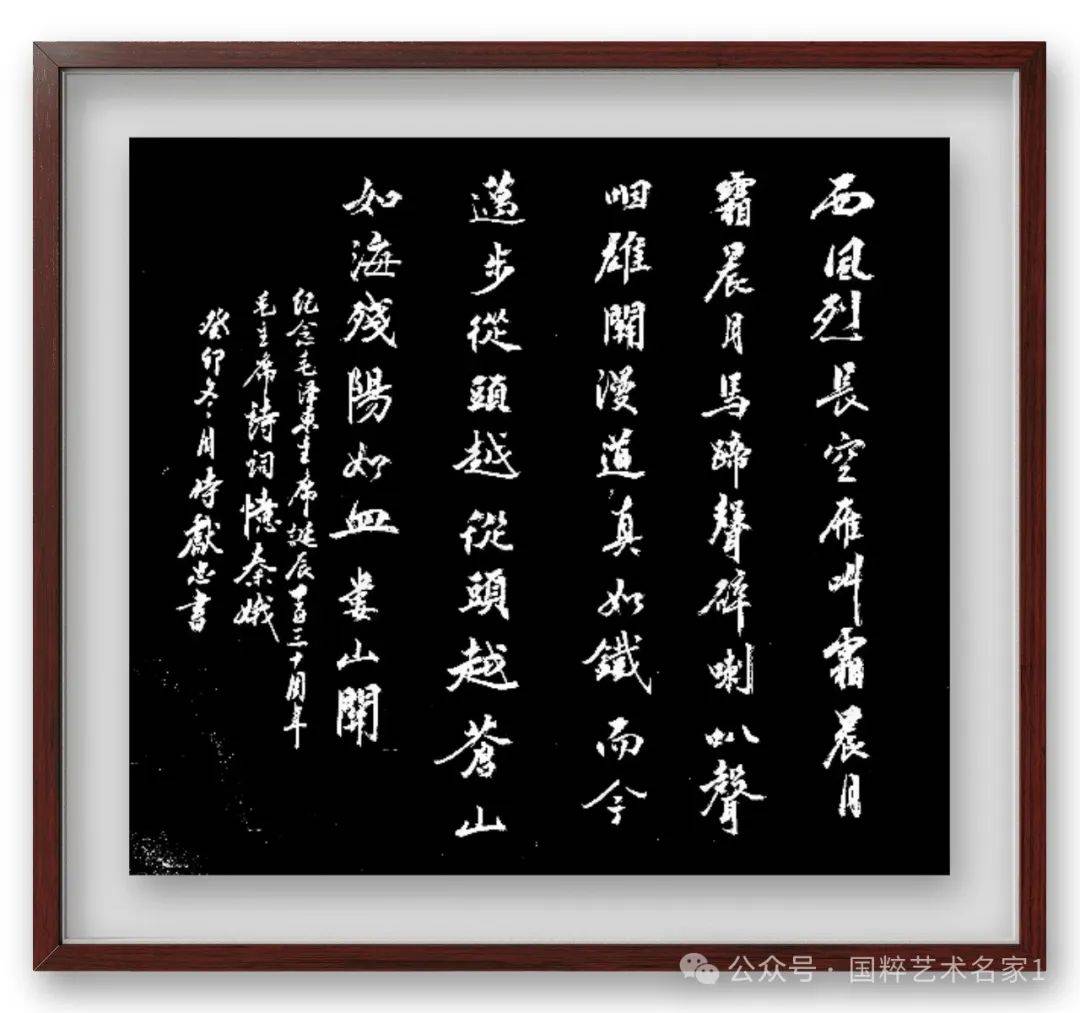 西風烈長空雁叫霜晨月
霜晨月馬蹄聲碎喇叭聲
咽雄關漫道真如鐵而今
邁步從頭越從頭越蒼山
如海殘陽如血婁山關
纪念毛泽東主席誕辰一百三十周年
毛主席詩詞憶秦娥
癸卯冬月侍獻忠書
公众号·国粹艺术名家1